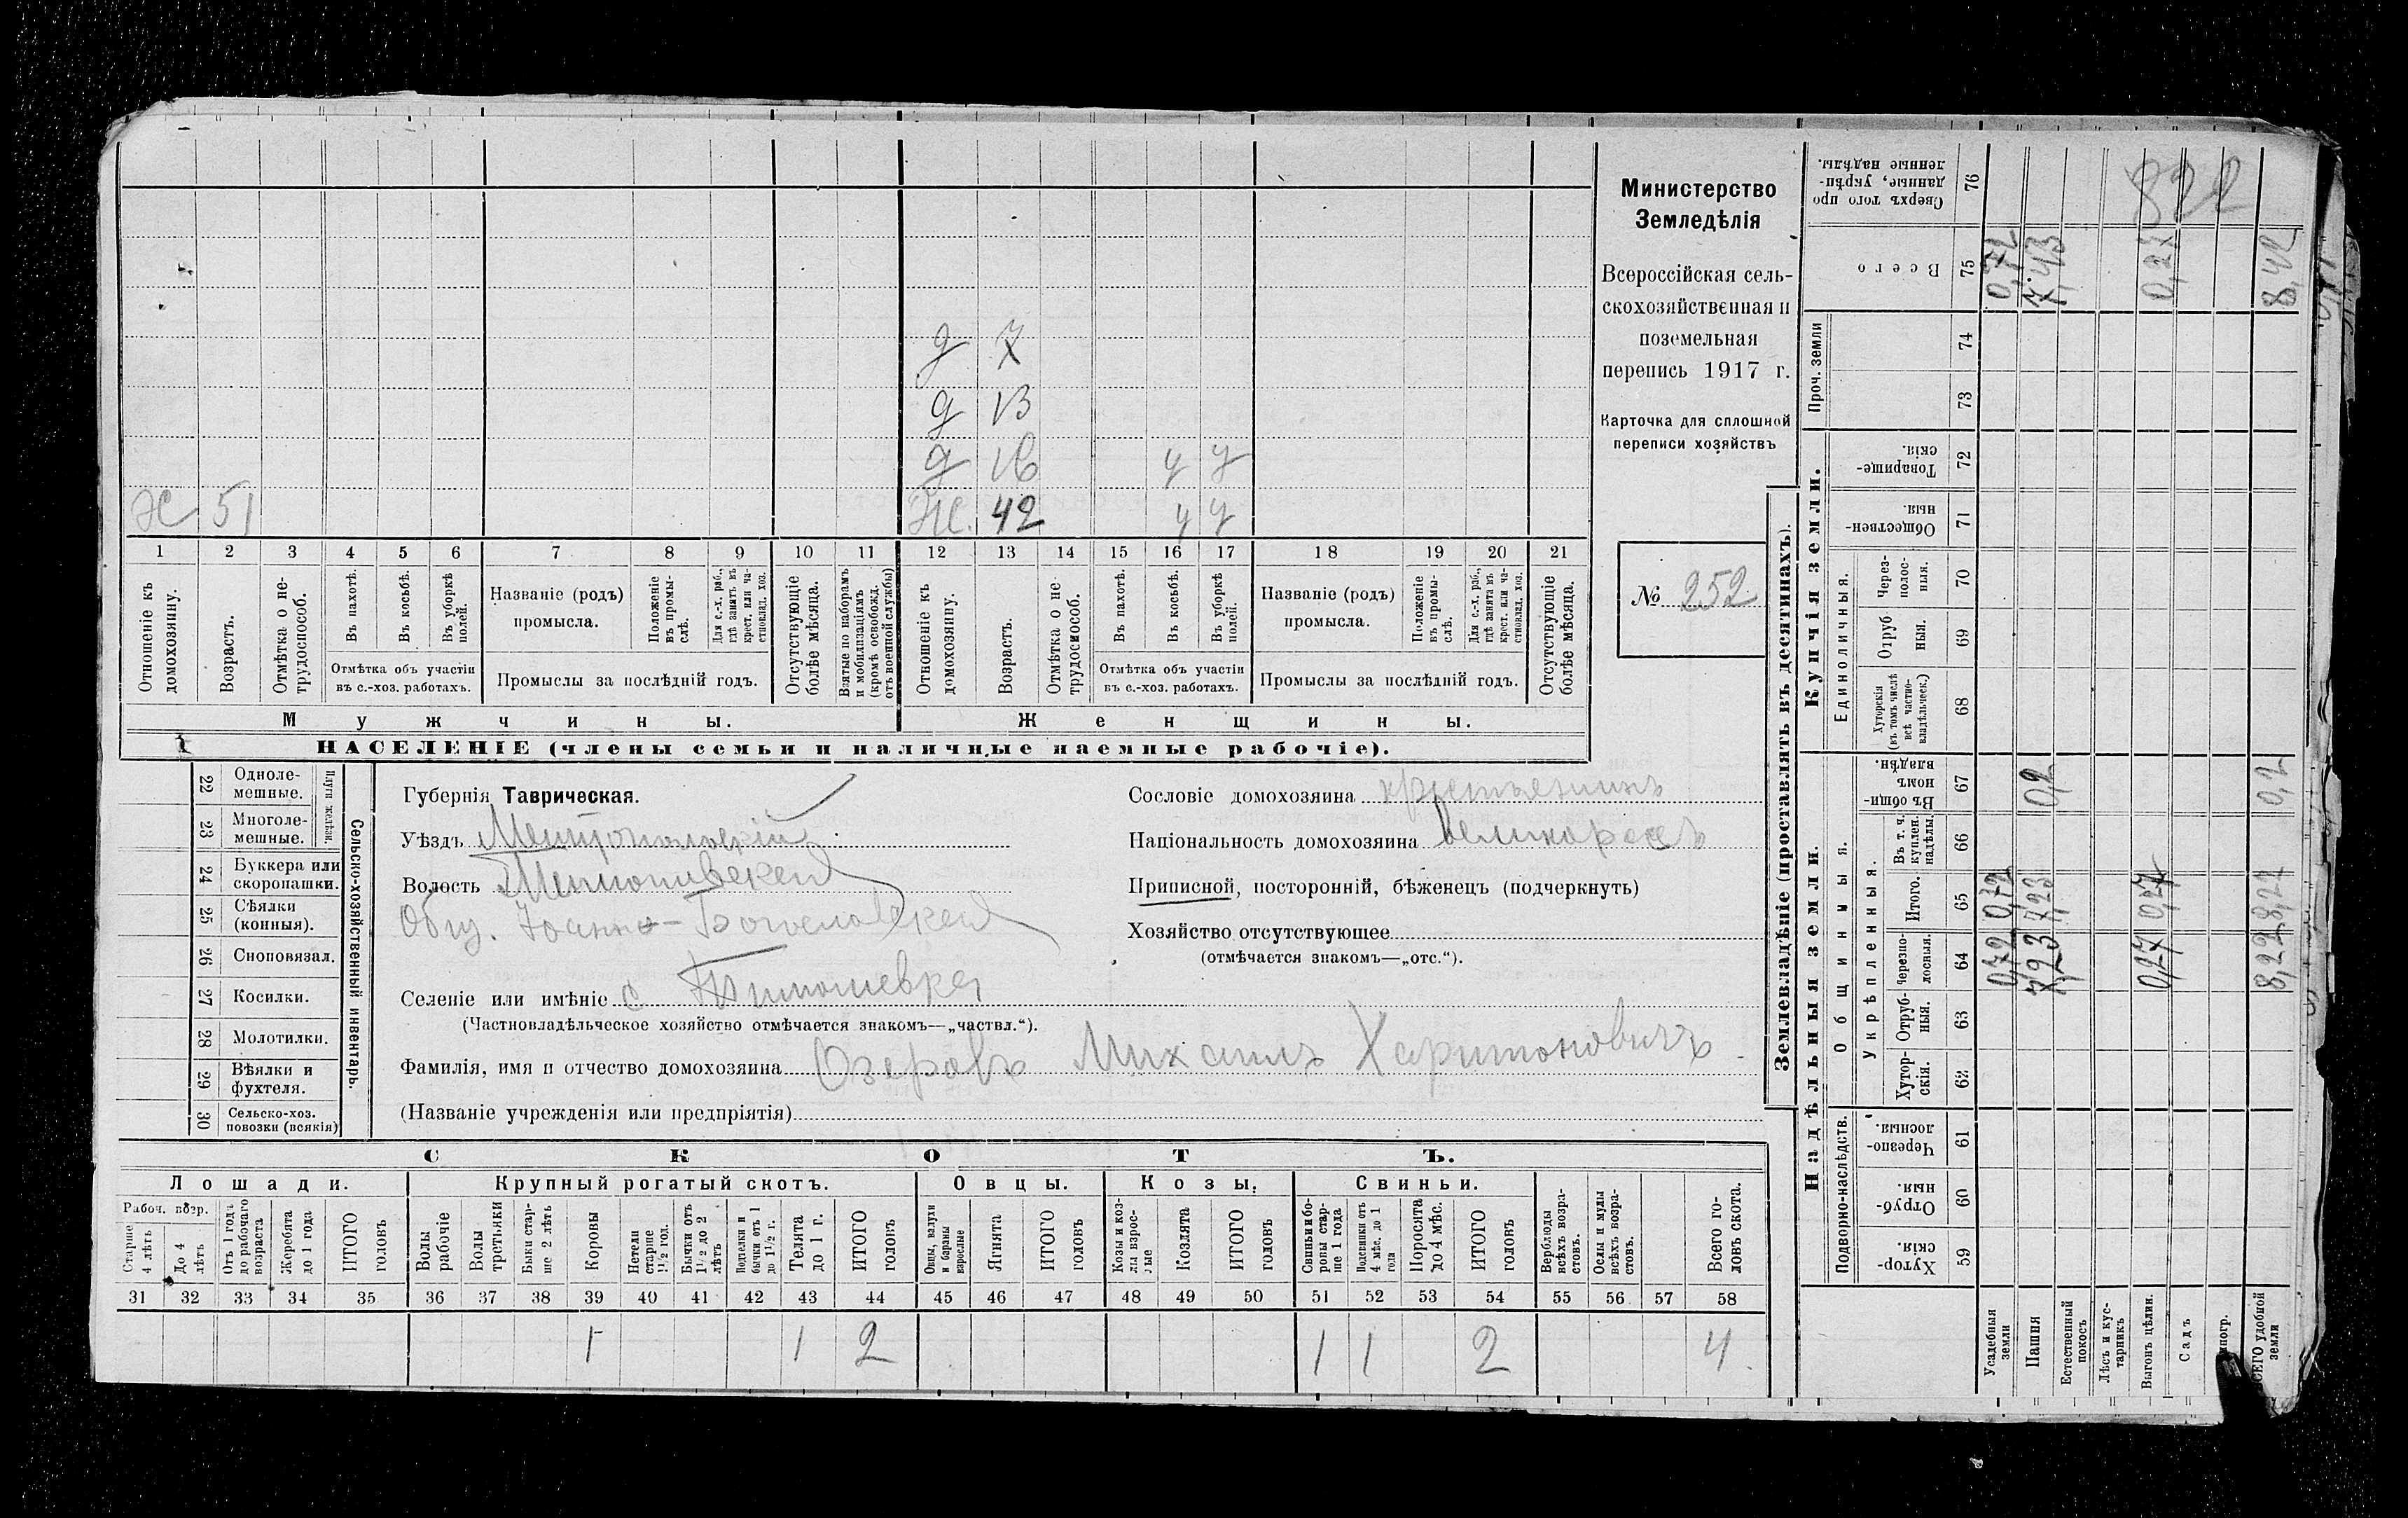 Министерство
Земледѣлія
Всероссійская сель-
скохозяйственная и
поземельная
перепись 1917 г.
Карточка для сплошной
переписи хозяйствъ
№ 252
д 7
д 13
д 16 у у
Ж 51 Ж. 42 у у
1 2 3 4 5 6 7 8 9 10 11 12 13 14 15 16 17 18 19 20 21
Отношеніе къ домохозяину.
Возрастъ.
Отмѣтка о не-трудоспособ.
Въ пахотѣ.
Въ косьбѣ.
Въ уборкѣ полей.
Отмѣтка объ участіи
въ с.-хоз. работахъ.
Названіе (родъ)
промысла.
Положеніе въ промы-слѣ.
Для с.-х. раб., гдѣ занятъ въ крест. или ча-стновлад. хоз.
Промыслы за послѣдній годъ.
Отсутствующіе болѣе мѣсяца.
Взятые по наборамъ и мобилизаціямъ (кромѣ освобожд. отъ военной службы)
Отношеніе къ домохозяину.
Возрастъ.
Отмѣтка о не трудоспособ.
Въ пахотѣ.
Въ косьбѣ.
Въ уборкѣ полей.
Отмѣтка объ участіи
въ с.-хоз. работахъ.
Названіе (родъ)
промысла.
Положеніе въ промы-слѣ.
Для с.-х. раб., гдѣ занята въ крест. или ча-стновлад. хоз.
Промыслы за послѣдній годъ.
Отсутствующіе болѣе мѣсяца.
Мужчины.
Женщины.
НАСЕЛЕНІЕ (члены семьи и наличные наемные рабочіе).
22 Одноле-мешные.
23 Многоле-мешные.
Плуги желѣзн.
24 Буккера или скоропашки.
25 Сѣялки (конныя).
26 Сноповязал.
27 Косилки.
28 Молотилки.
29 Вѣялки и фухтеля.
30 Сельско-хоз. повозки (всякія)
Сельско-хозяйственный инвентарь.
Губернія Таврическая.
Уѣздъ Мелитопольскій
Волость Тимошевской
Общ. Іоанно-Богословской
Селеніе или имѣніе с Тимошевка
(Частновладѣльческое хозяйство отмѣчается знакомъ—„частвл.“).
Фамилія, имя и отчество домохозяина Озеровъ Михаилъ Харитоновичъ
(Названіе учрежденія или предпріятія)
Сословіе домохозяина крестьянинъ
Національность домохозяина великороссъ
Приписной, посторонній, бѣженецъ (подчеркнуть)
Хозяйство отсутствующее
(отмѣчается знакомъ—„отс.“).
СКОТЪ.
Лошади. Крупный рогатый скотъ. Овцы. Козы. Свиньи.
Рабоч. возр.
Старше 4 лѣтъ
До 4 лѣтъ
Отъ 1 года до рабочаго возраста
Жеребята до 1 года
ИТОГО головъ
Волы рабочіе
Волы третьяки
Быки стар-ше 2 лѣтъ
Коровы
Нетели старше 1½ год.
Бычки отъ 1½ до 2 лѣтъ
Подтелки и бычки отъ 1 до 1½ г.
Телята до 1 г.
ИТОГО головъ
Овцы, валухи и бараны взрослые
Ягнята
ИТОГО головъ
Козы и коз-лы взрос-лые
Козлята
ИТОГО головъ
Свиньи и бо-ровы стар-ше 1 года
Подсвинки отъ 4 мѣс. до 1 года
Поросята до 4 мѣс.
ИТОГО головъ
Верблюды всѣхъ возра-стовъ.
Ослы и мулы всѣхъ возра-стовъ.
Всего го-ловъ скота.
31 32 33 34 35 36 37 38 39 40 41 42 43 44 45 46 47 48 49 50 51 52 53 54 55 56 57 58
1 1 2 1 1 2 4.
Землевладѣніе (проставлять въ десятинахъ).
Надѣльныя земли.
Купчія земли.
Проч. земли
Подворно-наслѣдств.
Общинныя.
Укрѣпленныя.
Единоличныя.
Хутор-скія. 59
Отруб-ныя. 60
Черезпо-лосныя. 61
Хутор-скія. 62
Отруб-ныя. 63
черезпо-лосныя. 64
Итого. 65
Въ т. ч. куплен. надѣлы. 66
Въ общи-номъ владѣн. 67
Хуторскія (въ томъ числѣ всѣ частно-владѣльческ.) 68
Отруб ныя. 69
Через-полос-ныя. 70
Обществен-ныя. 71
Товарище-скія. 72
73
74
Всего 75
Сверхъ того про данные, укрѣп-ленные надѣлы. 76
Усадебныя земли 0,72 0,72 0,72
Пашня 7,23 7,23 0,2 7,43
Естественный покосъ
Лѣсъ и кус-тарникъ
Выгонъ цѣлин. 0,27 0,27 0,27
Садъ
ВСЕГО удобной земли 8,22 8,22 0,2 8,42
822